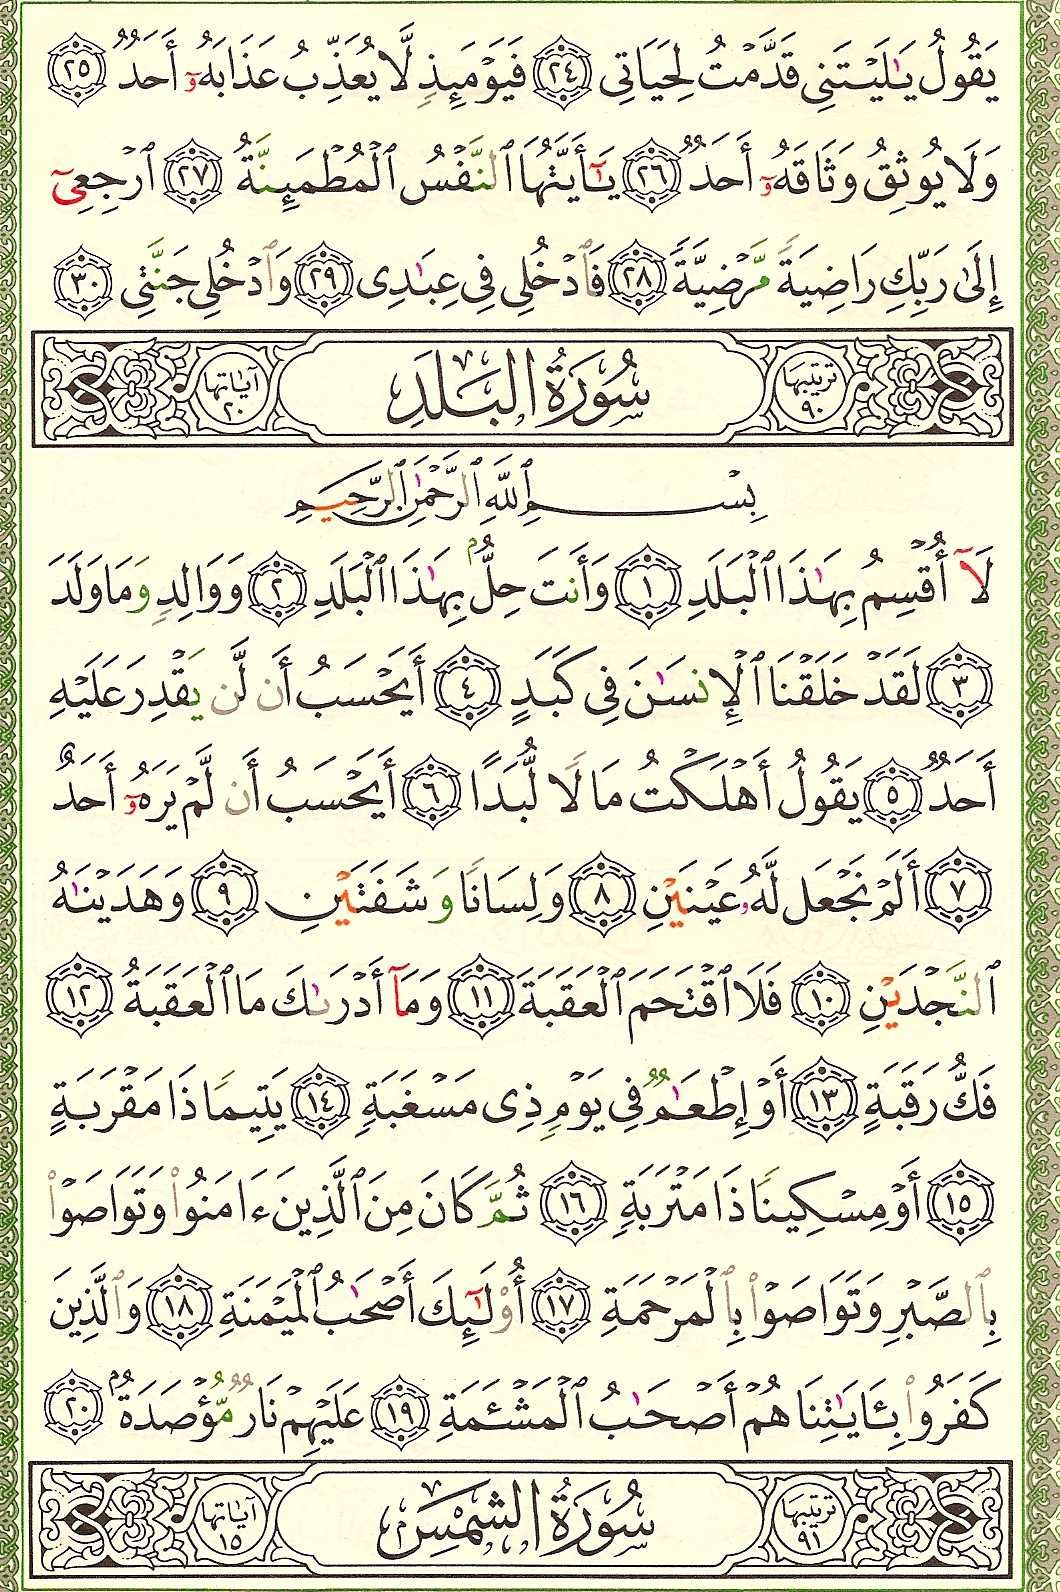 يَقُولُ يَـٰلَيۡتَنِي قَدَّمۡتُ لِحَيَاتِي ٢٤ فَيَوۡمَئِذٖ لَّا يُعَذِّبُ عَذَابَهُۥٓ أَحَدٞ ٢٥
وَلَا يُوثِقُ وَثَاقَهُۥٓ أَحَدٞ ٢٦ يَـٰٓأَيَّتُهَا ٱلنَّفۡسُ ٱلۡمُطۡمَئِنَّةُ ٢٧ ٱرۡجِعِيٓ
إِلَىٰ رَبِّكِ رَاضِيَةٗ مَّرۡضِيَّةٗ ٢٨ فَٱدۡخُلِي فِي عِبَـٰدِي ٢٩ وَٱدۡخُلِي جَنَّتِي ٣٠
ترتيبها ٩٠ سُورَةُ البَلَدِ آياتها ٢٠
بِسۡمِ ٱللَّهِ ٱلرَّحۡمَـٰنِ ٱلرَّحِيمِ
لَآ أُقۡسِمُ بِهَـٰذَا ٱلۡبَلَدِ ١ وَأَنتَ حِلُّۢ بِهَـٰذَا ٱلۡبَلَدِ ٢ وَوَالِدٖ وَمَا وَلَدَ
٣ لَقَدۡ خَلَقۡنَا ٱلۡإِنسَـٰنَ فِي كَبَدٍ ٤ أَيَحۡسَبُ أَن لَّن يَقۡدِرَ عَلَيۡهِ
أَحَدٞ ٥ يَقُولُ أَهۡلَكۡتُ مَالٗا لُّبَدًا ٦ أَيَحۡسَبُ أَن لَّمۡ يَرَهُۥٓ أَحَدٌ
٧ أَلَمۡ نَجۡعَل لَّهُۥ عَيۡنَيۡنِ ٨ وَلِسَانٗا وَشَفَتَيۡنِ ٩ وَهَدَيۡنَـٰهُ
ٱلنَّجۡدَيۡنِ ١٠ فَلَا ٱقۡتَحَمَ ٱلۡعَقَبَةَ ١١ وَمَآ أَدۡرَىٰكَ مَا ٱلۡعَقَبَةُ ١٢
فَكُّ رَقَبَةٍ ١٣ أَوۡ إِطۡعَـٰمٞ فِي يَوۡمٖ ذِي مَسۡغَبَةٖ ١٤ يَتِيمٗا ذَا مَقۡرَبَةٍ
١٥ أَوۡ مِسۡكِينٗا ذَا مَتۡرَبَةٖ ١٦ ثُمَّ كَانَ مِنَ ٱلَّذِينَ ءَامَنُواْ وَتَوَاصَوۡاْ
بِٱلصَّبۡرِ وَتَوَاصَوۡاْ بِٱلۡمَرۡحَمَةِ ١٧ أُوْلَـٰٓئِكَ أَصۡحَـٰبُ ٱلۡمَيۡمَنَةِ ١٨ وَٱلَّذِينَ
كَفَرُواْ بِـَٔايَـٰتِنَا هُمۡ أَصۡحَـٰبُ ٱلۡمَشۡـَٔمَةِ ١٩ عَلَيۡهِمۡ نَارٞ مُّؤۡصَدَةُۢ ٢٠
ترتيبها ٩١ سُورَةُ الشَّمۡسِ آياتها ١٥